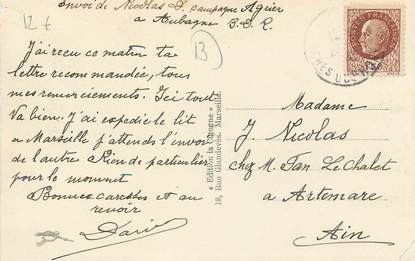 12 €
Envoi de Nicolas D. campagne Agnier
a Aubagne B.D.R.
13
J'ai recu ce matin ta
lettre recommandée, tous
mes remerciements. Ici tout
va bien. J'ai expedie le lit
a Marseille j'attends l'envoi
de l'autre Rien de particulier
pour le moment
Bonnes caresses et au
revoir
" Edition la Cigogne "
18, Rue Glandevès. Marseille.
Madame
J. Nicolas
chez M. Fan Le Chalet
a Artemare
Ain